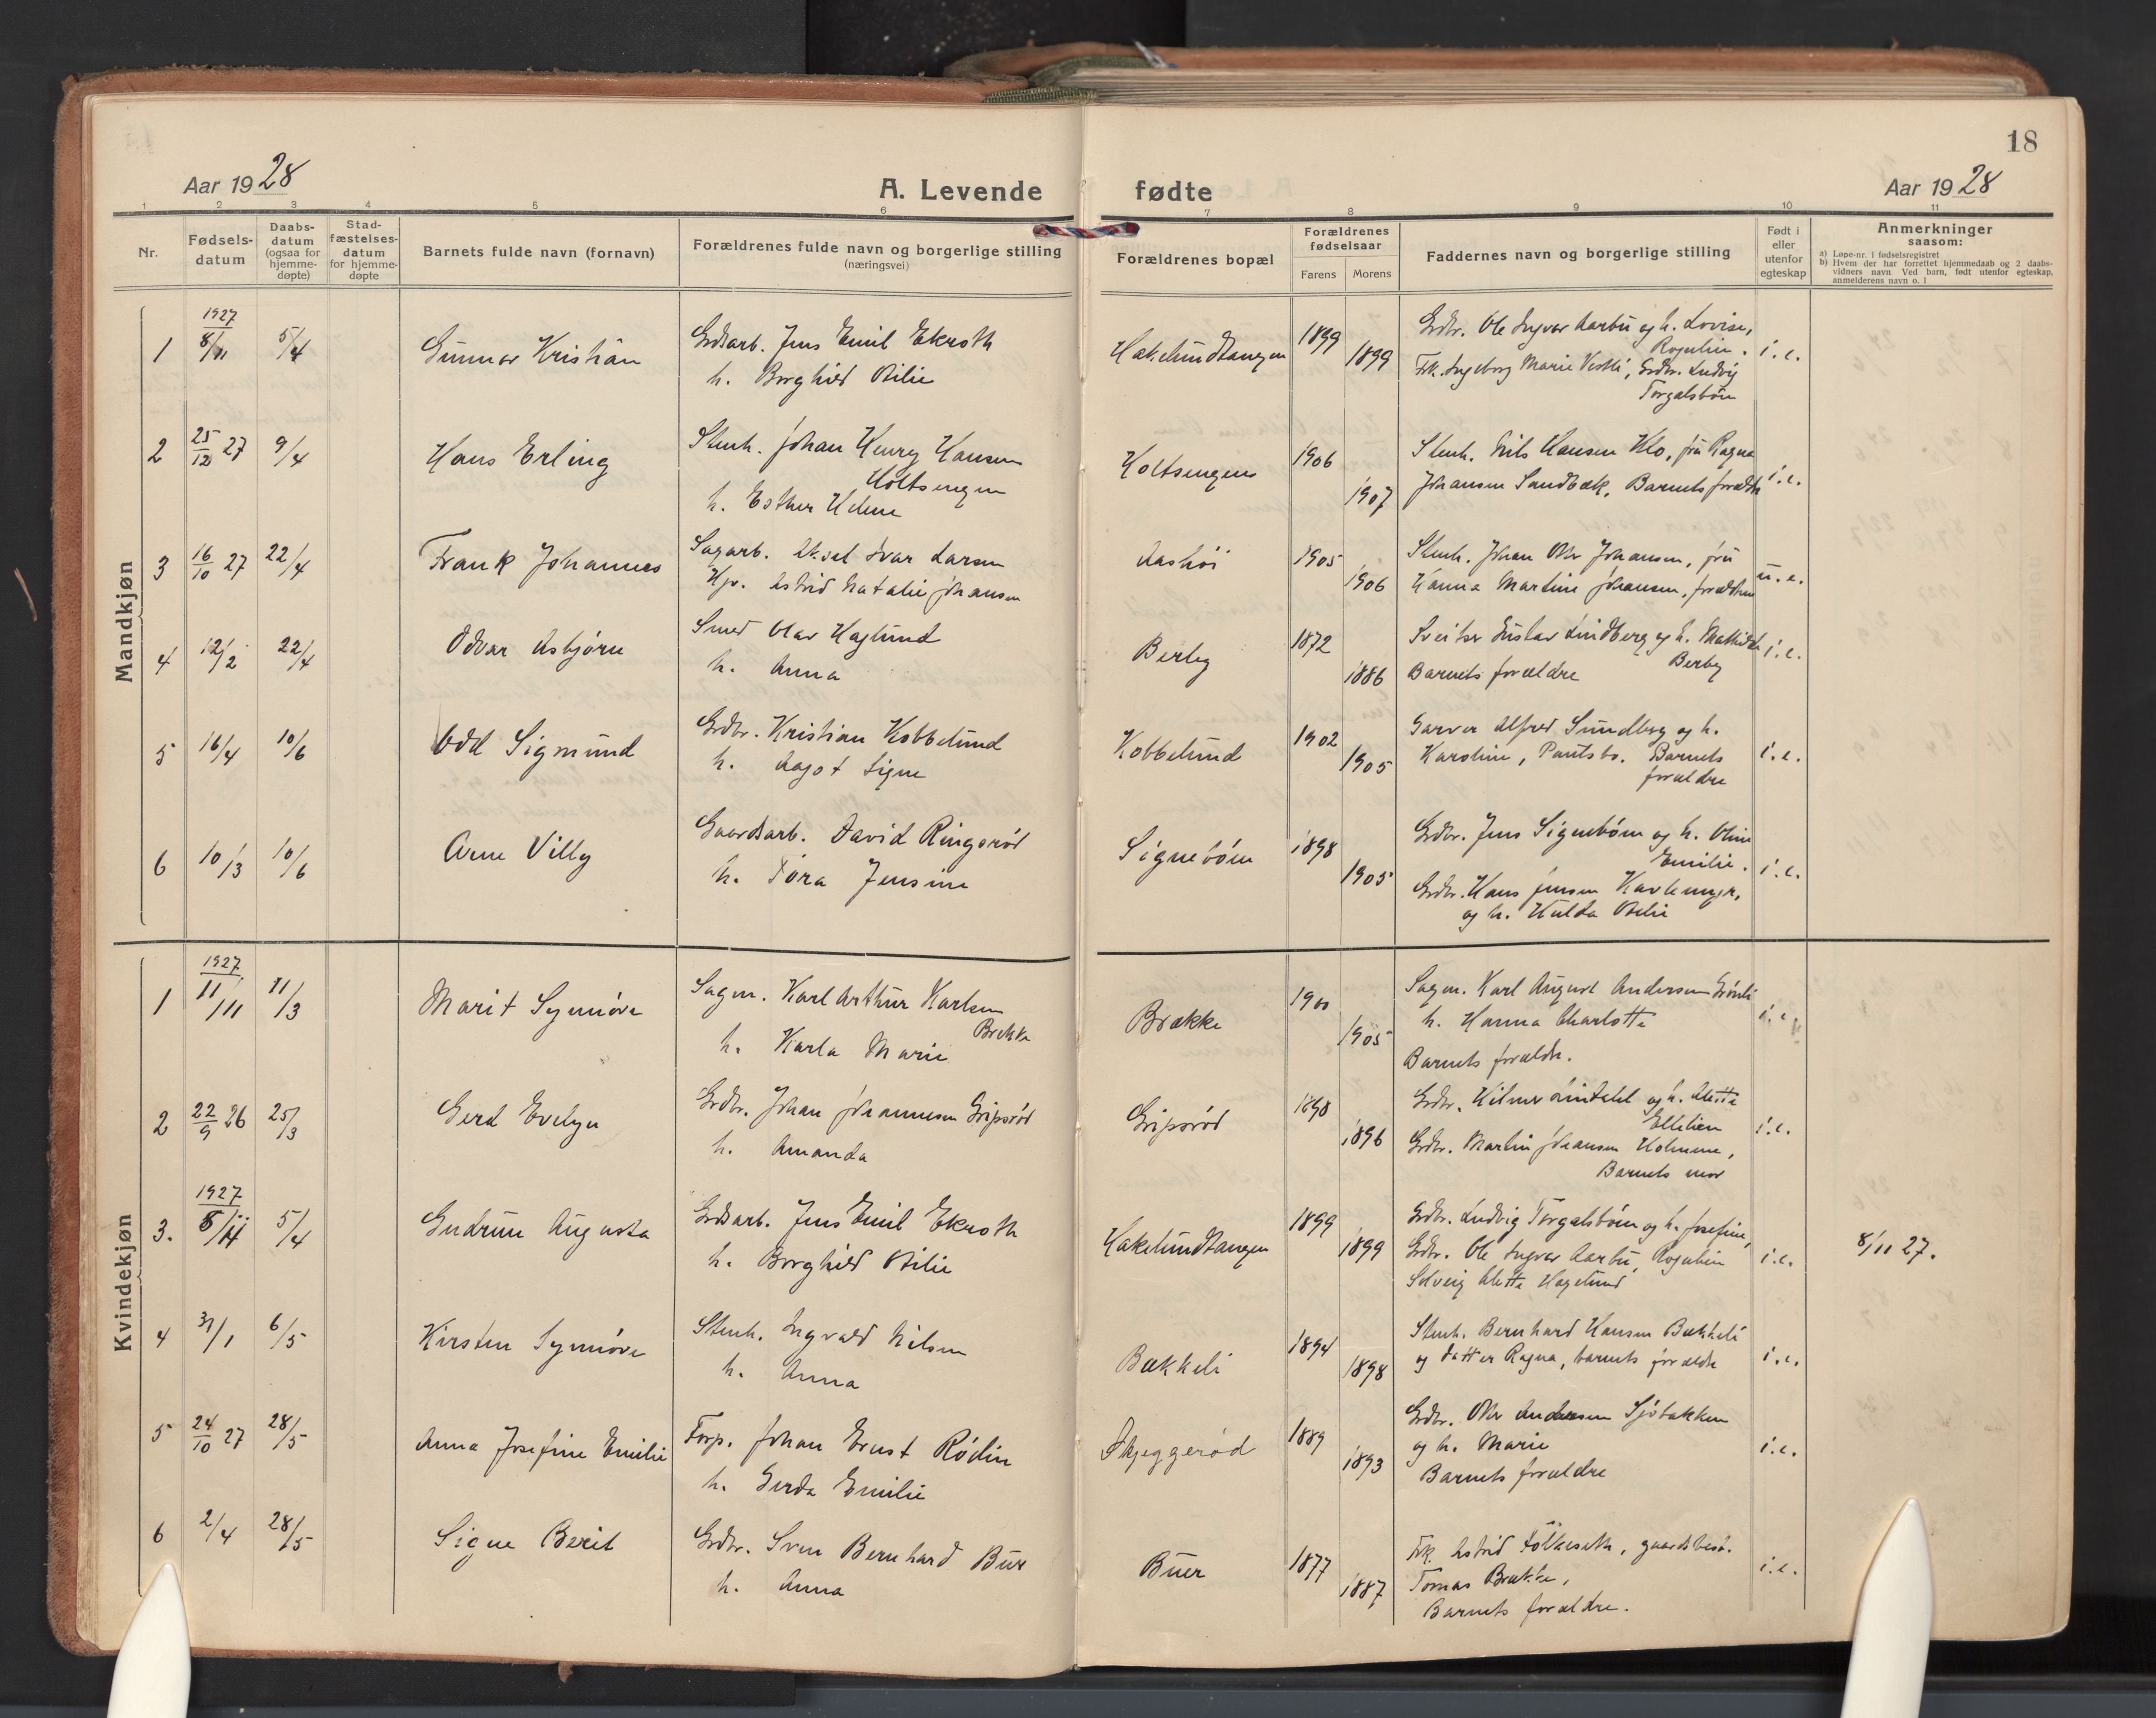 18
Aar 1928
A. Levende fødte
Aar 1928
1 2 3 4 5 6 7 8 9 10 11
Nr.
Fødsels-
datum
Daabs-
datum
(ogsaa for
hjemme-
døpte)
Stad-
fæstelses-
datum
for hjemme-
døpte
Barnets fulde navn (fornavn)
Forældrenes fulde navn og borgerlige stilling
(næringsvei)
Forældrenes bopæl
Forældrenes
fødselsaar
Farens Morens
Faddernes navn og borgerlige stilling
Født i
eller
utenfor
egteskap
Anmerkninger
saasom:
a) Løpe-nr. i fødselsregistret
b) Hvem der har forrettet hjemmedaab og 2 daabs-
vidners navn. Ved barn, født utenfor egteskap,
anmelderens navn o. l
Mandkjøn
1 1927 8/11 5/4 Gunnar Kristian
Grdsarb. Jens Emil Ekroth
h. Borghild Otilie
Hakelundtangen 1899 1899
Grdbr. Ole Ingvar Aarbu og h. Lovise,
Rogulien.
Frk. Ingeborg Marie Vestli, Grdbr. Ludvig
Torgalsbøn
i.e.
2 25/12 27 9/4 Hans Erling
Stenh. Johan Henry Hansen
Holtsengen
h. Esther Helene
Holtsengen 1906 1907
Stenh. Nils Hansen Klo, fru Ragna
Johansen Sandbæk, Barnets forældre
i.e.
3 16/10 27 22/4 Frank Johannes
Sagarb. Aksel Ivar Larsen
Hjv. Astrid Natalie Johansen
Aashøi 1905 1906
Stenh. Johan Olav Johansen, fru
Hanna Martine Johansen, forældrene
u.e.
4 12/2 22/4 Odvar Asbjørn
Smed Olav Haglund
h. Anna
Berby 1872 1886
Sveitser Gustav Lindberg og h. Mathilde
Berby
Barnets forældre
i.e.
5 16/4 10/6 Odd Sigmund
Grdbr. Kristian Kobbelund
h. Aagot Signe
Kobbelund 1902 1905
Garver Alfred Sundberg og h.
Karoline, Pautsbo. Barnets
forældre
i.e.
6 10/3 10/6 Arne Villy
Gaardsarb. David Ringsrød
h. Tora Jensine
Signebøen 1898 1905
Grdbr. Jens Signebøen og h. Oline
Emilie.
Grdbr. Hans Jensen
og h. Hulda Otilie
i.e.
Kvindekjøn
1 1927 11/11 11/3 Marit Synnøve
Sagm. Karl Arthur Karlsen
Brekke
h. Karla Marie
Brække 1900 1905
Sagm. Karl August Andersen Grønli
h. Hanna Charlotte
Barnets forældre.
i.e.
2 22/9 26 25/3 Gerd Evelyn
Grdbr. Johan Johannesen Gripsrød
h. Amanda
Gripsrød 1898 1896
Grdbr. Hilmer Lintahl og h. Alette
Ellelien
Grdbr. Martin Johansen Holmene,
Barnets mor
i.e.
3. 1927 8/11 5/4 Gudrun Augusta
Grdsarb. Jens Emil Ekroth
h. Borghild Otilie
Hakelundtangen 1899 1899
Grdbr. Ludvig Torgalsbøen og h. Josefine,
Grdbr. Ole Ingvar Aarbu, Rogulien
Solveig Alette Hagelund
i.e.
8/11 27.
4 31/1 6/5 Kirsten Synnøve
Stenh. Ingvald Nilsen
h. Anna
Bækkeli 1894 1898
Stenh. Bernhard Hansen Bækkeli
og datter Ragna, barnets forældre
i.e.
5 24/10 27 28/5 Anna Josefine Emilie
Forp. Johan Ernst Rødin
h. Gerda Emilie
Skjeggerød 1889 1893
Grdbr. Olav Andersen Sjøbakken
og h. Marie
Barnets forældre
i.e.
6 2/4 28/5 Signe Berit
Grdbr. Sven Bernhard Buer
h. Anna
Buer 1877 1887
Frk. Astrid Folkeseth, gaardbest.
Tomas Brække,
Barnets forældre.
i.e.